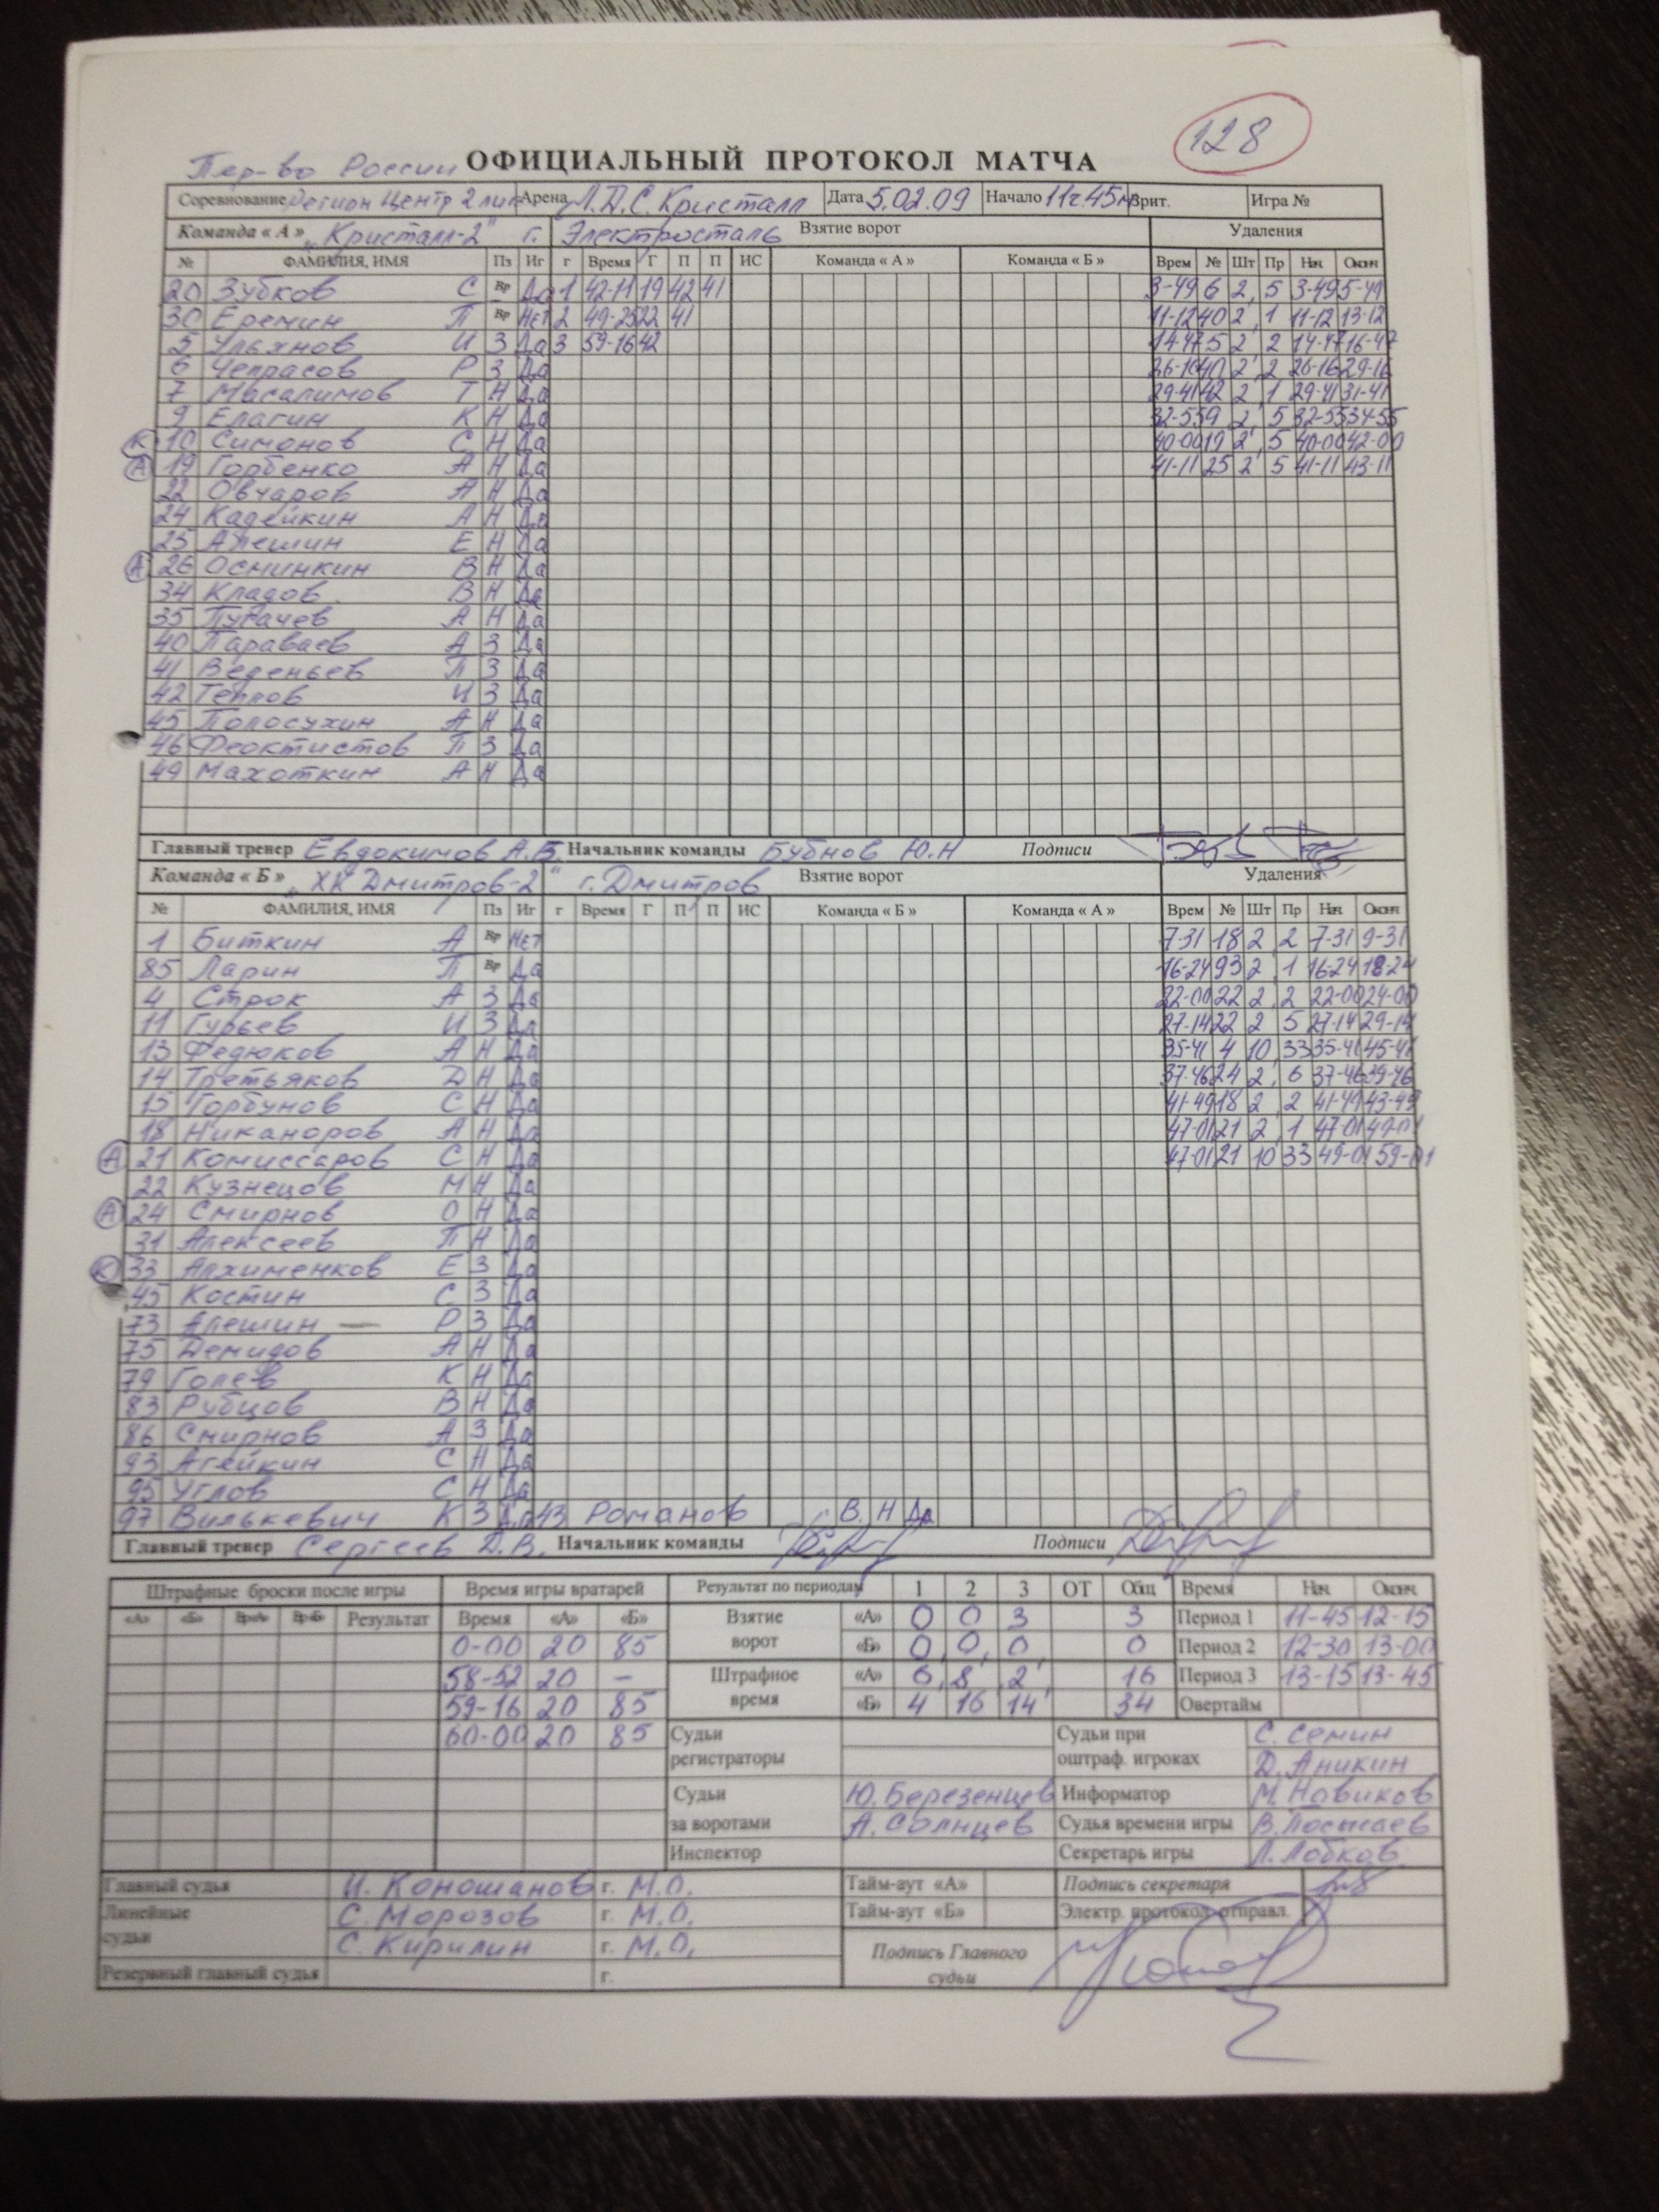 128
Пер-во России ОФИЦИАЛЬНЫЙ ПРОТОКОЛ МАТЧА
Соревнование Регион Центр 2 лига Арена Л.Д.С. Кристалл Дата 5.02.09 Начало 11ч.45м Зрит. Игра №
Команда « А » „Кристалл-2" г. Электросталь Взятие ворот Удаления
№ ФАМИЛИЯ, ИМЯ Пз Иг г Время Г П П ИС Команда « А » Команда « Б » Врем № Шт Пр Нач Оконч
20 Зубков С Вр Да 1 42-11 19 42 41 3-49 6 2 5 3-49 5-49
30 Еремин П Вр Нет 2 49-25 22 41 11-12 40 2' 1 11-12 13-12
5 Ульянов И З Да 3 59-16 42 14-47 5 2' 2 14-47 16-47
6 Чепрасов Р З Да 26-16 40 2' 2 26-16 29-16
7 Масалимов Т Н Да 29-41 42 2 1 29-41 31-41
9 Елагин К Н Да 32-55 9 2' 5 32-55 34-55
К 10 Симонов С Н Да 40-00 19 2' 5 40-00 42-00
А 19 Горбенко А Н Да 41-11 25 2' 5 41-11 43-11
22 Овчаров А Н Да
24 Кадейкин А Н Да
25 Алешин Е Н Да
А 26 Осминкин В Н Да
34 Кладов В Н Да
35 Пугачев А Н Да
40 Параваев А З Да
41 Веденьев П З Да
42 Теплов И З Да
45 Полосухин А Н Да
46 Феоктистов П З Да
49 Махоткин А Н Да
Главный тренер Евдокимов А.В. Начальник команды Бубнов Ю.Н Подписи
Команда « Б » „ХК Дмитров-2" г. Дмитров Взятие ворот Удаления
№ ФАМИЛИЯ, ИМЯ Пз Иг г Время Г П П ИС Команда « Б » Команда « А » Врем № Шт Пр Нач Оконч
1 Биткин А Вр Нет 7-31 18 2 2 7-31 9-31
85 Ларин П Вр Да 16-24 93 2 1 16-24 18-24
4 Строк А З Да 22-00 22 2 2 22-00 24-00
11 Гурьев И З Да 27-14 22 2 5 27-14 29-14
13 Федюков А Н Да 35-41 4 10 33 35-41 45-41
14 Третьяков Д Н Да 37-46 24 2' 6 37-46 39-46
15 Горбунов С Н Да 41-49 18 2 2 41-49 43-49
18 Никаноров А Н Да 47-01 21 2 1 47-01 49-01
А 21 Комиссаров С Н Да 47-01 21 10 33 49-01 59-01
22 Кузнецов М Н Да
А 24 Смирнов О Н Да
31 Алексеев П Н Да
К 33 Алхименков Е З Да
45 Костин С З Да
73 Алешин — Р З Да
75 Демидов А Н Да
79 Голев К Н Да
83 Рубцов В Н Да
86 Смирнов А З Да
93 Агейкин С Н Да
95 Углов С Н Да
97 Вилькевич К З Да 43 Романов В. Н Да
Главный тренер Сергеев Д.В. Начальник команды Подписи
Штрафные броски после игры Время игры вратарей Результат по периодам 1 2 3 ОТ Общ Время Нач Оконч
«А» «Б» Вр«А» Вр«Б» Результат Время «А» «Б» Взятие ворот «А» 0 0 3 3 Период 1 11-45 12-15
0-00 20 85 «Б» 0 0 0 0 Период 2 12-30 13-00
58-52 20 – Штрафное время «А» 6 8 2 16 Период 3 13-15 13-45
59-16 20 85 «Б» 4 16 14 34 Овертайм
60-00 20 85 Судьи регистраторы Судьи при оштраф. игроках С. Семин
Д. Аникин
Судьи за воротами Ю. Березенцев Информатор М. Новиков
А. Солнцев Судья времени игры
Инспектор Секретарь игры Л. Лобков
Главный судья И. Коношанов г. М.О. Тайм-аут «А» Подпись секретаря
Линейные судьи С. Морозов г. М.О. Тайм-аут «Б» Электр. протокол отправл.
С. Кирилин г. М.О. Подпись Главного судьи
Резервный главный судья г.